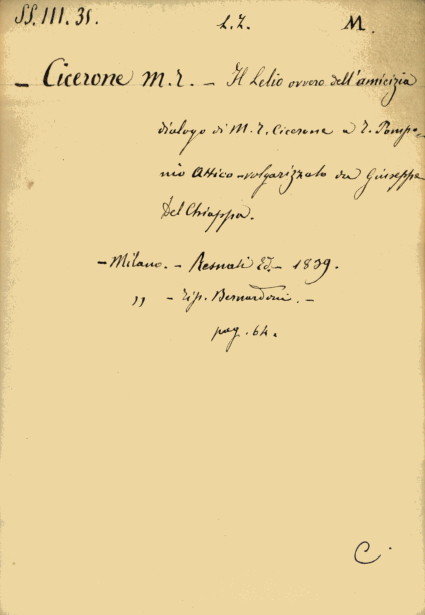 SS. III. 31. L. Z. M.
– Cicerone M. T. – Il Lelio ovvero dell'amicizia
dialogo di M. T. Cicerone a T. Pompo-
nio Attico – volgarizzato da Giuseppe
Del Chiappa.
– Milano. – Resnati Ed. – 1839.
,, – Tip. Bernardoni. –
pag. 64.
C.